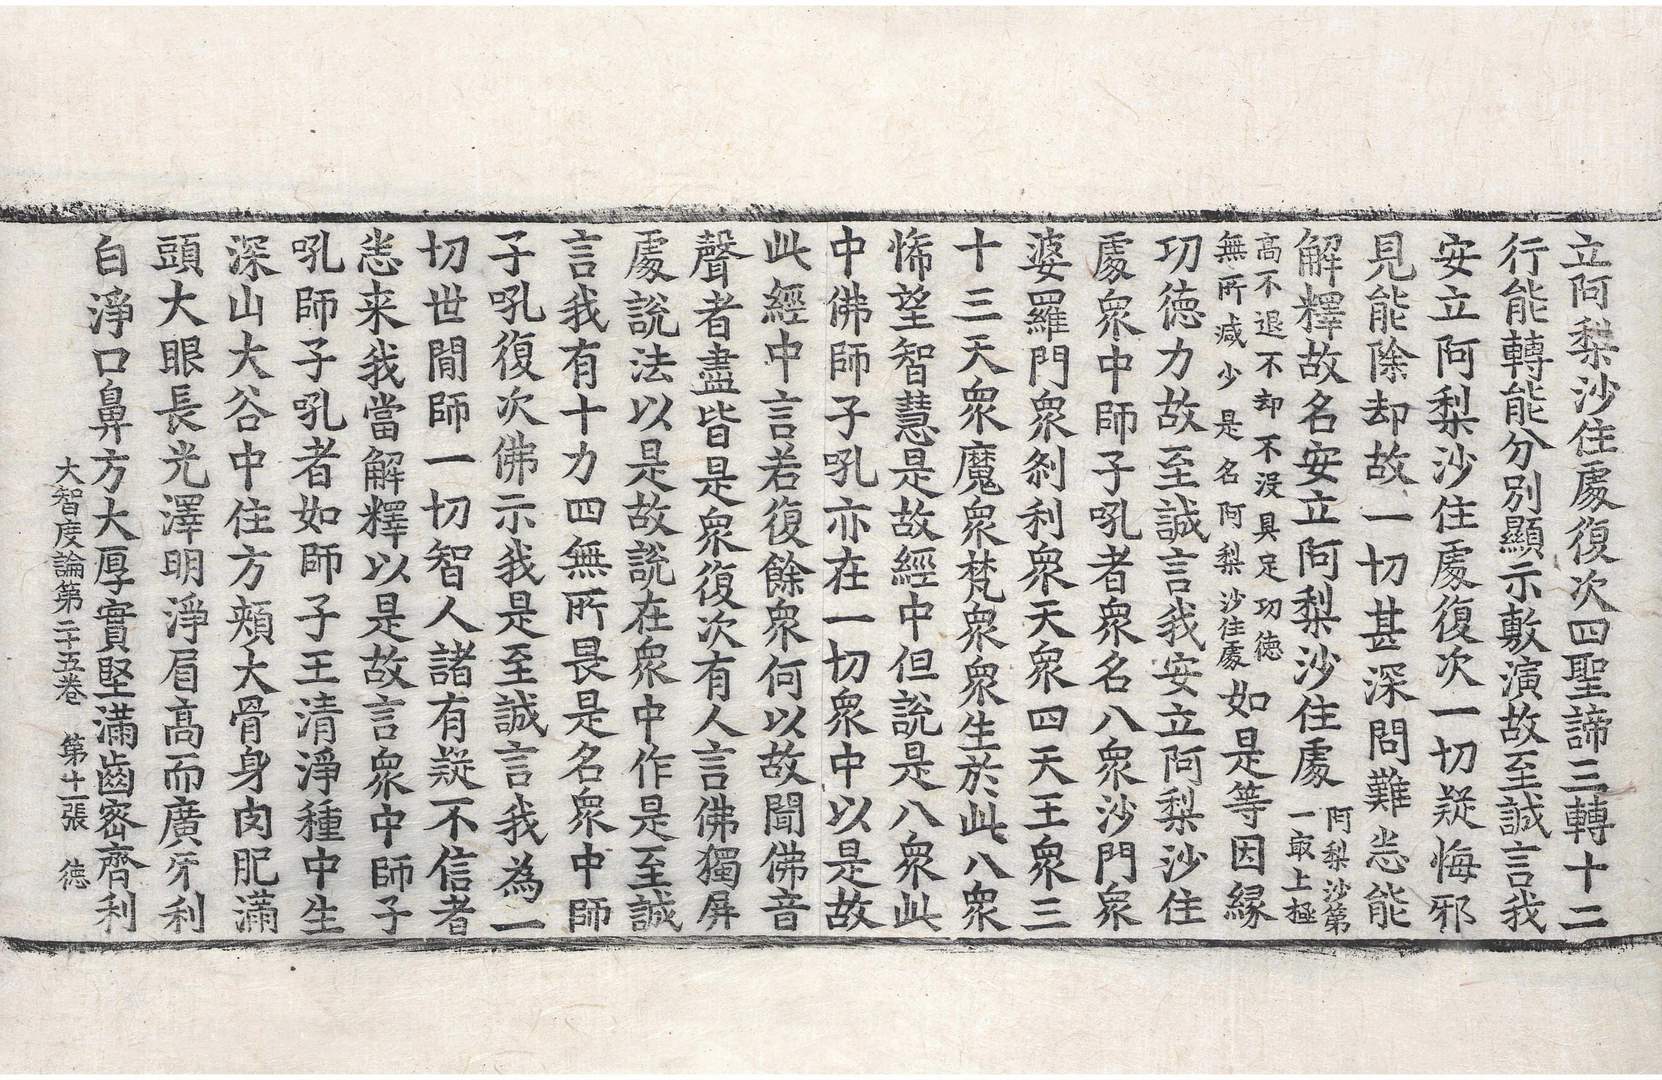 立阿梨沙住處復次四聖諦三轉十二
行能轉能分別顯示敷演故至誠言我
安立阿梨沙住處復次一切疑悔邪
見能除却故一切甚深問難悉能
解釋故名安立阿梨沙住處阿梨沙第一最上極
高不退不却不沒具足功德無所減少是名阿梨沙住處如是等因緣
功德力故至誠言我安立阿梨沙住
處衆中師子吼者衆名八衆沙門衆
婆羅門衆剎利衆天衆四天王衆三
十三天衆魔衆梵衆衆生於此八衆
悕望智慧是故經中但說是八衆此
中佛師子吼亦在一切衆中以是故
此經中言若復餘衆何以故聞佛音
聲者盡皆是衆復次有人言佛獨屏
處說法以是故說在衆中作是至誠
言我有十力四無所畏是名衆中師
子吼復次佛示我是至誠言我為一
切世間師一切智人諸有疑不信者
悉来我當解釋以是故言衆中師子
吼師子吼者如師子王清淨種中生
深山大谷中住方頰大骨身肉肥滿
頭大眼長光澤明淨眉高而廣牙利
白淨口鼻方大厚實堅滿齒密齊利
大智度論第二十五卷 第十一張 德